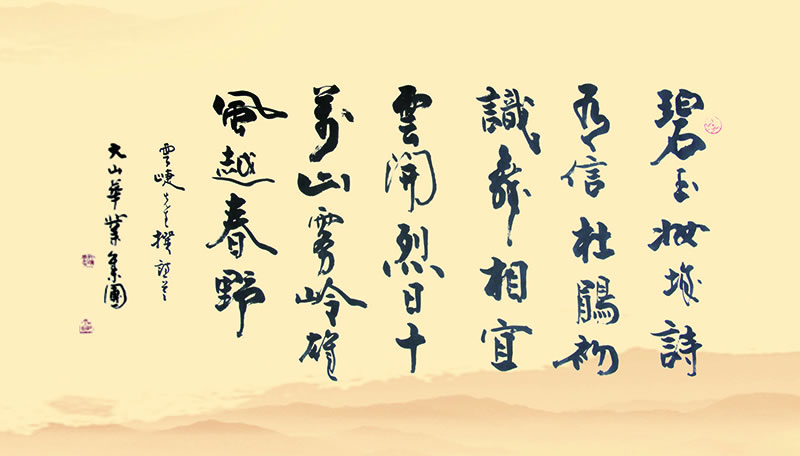 碧玉妝城詩
有信杜鵑初
識舞相宜
雲開烈日十
萬山雾岭雄
風越春野
先生撰
大山華業集團